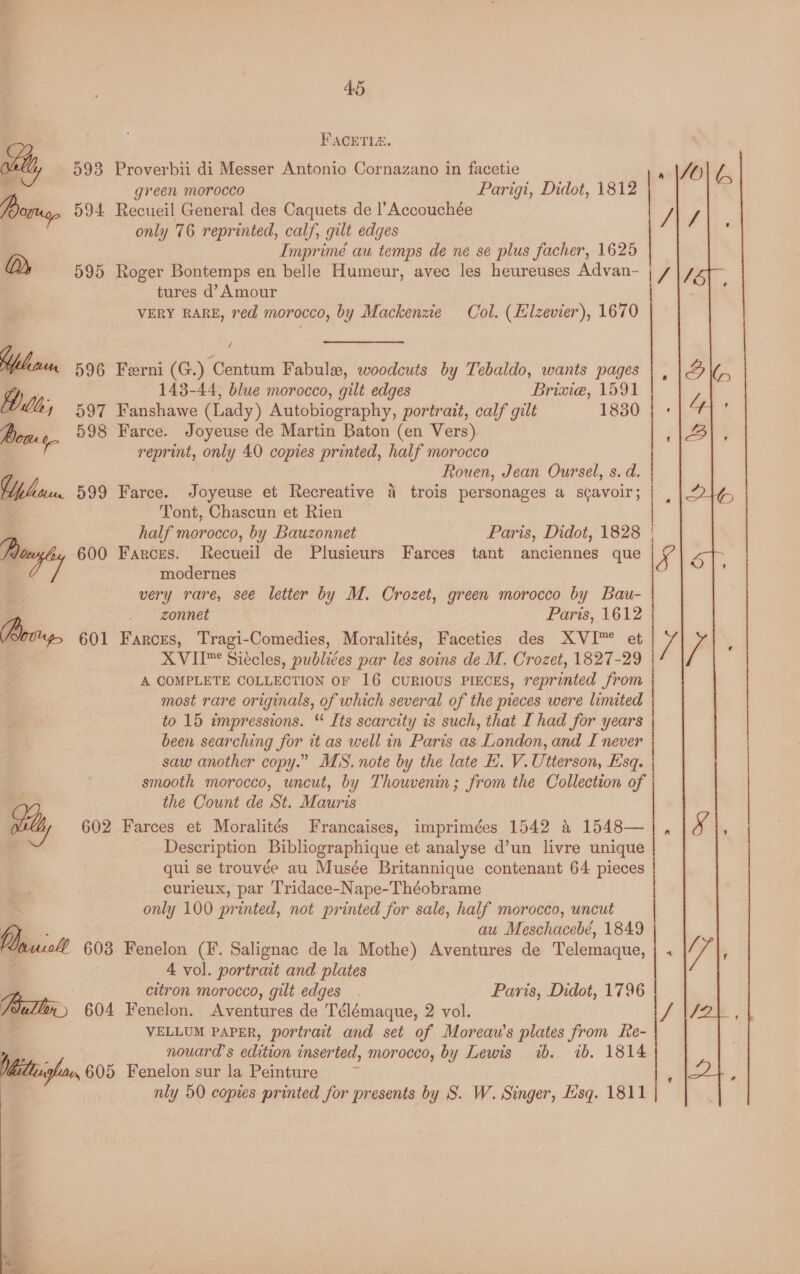 45
FACETIÆ.
593 Proverbii di Messer Antonio Cornazano in facetie
green morocco Parigi, Didot, 1812 . 10 6
594 Recueil General des Caquets de l'Accouchée
only 76 reprinted, calf, gilt edges 1 1 .
Imprimé au temps de ne se plus facher, 1625
595 Roger Bontemps en belle Humeur, avec les heureuses Advan-
tures d'Amour
VERY RARE, red morocco, by Mackenzie Col. (Elzevier), 1670
Upham 596 Færni (G.) Centum Fabulæ, woodcuts by Tebaldo, wants pages
143-44, blue morocco, gilt edges Brixiæ, 1591
Willis 597 Fanshawe (Lady) Autobiography, portrait, calf gilt 1830 . 4 .
598 Farce. Joyeuse de Martin Baton (en Vers)
reprint, only 40 copies printed, half morocco . 3 .
Rouen, Jean Oursel, s. d.
Upham 599 Farce. Joyeuse et Recreative à trois personages a sçavoir; . 2 6
Tout, Chascun et Rien
half morocco, by Bauzonnet Paris, Didot, 1828
600 FARCES. Recueil de Plusieurs Farces tant anciennes que
modernes
very rare, see letter by M. Crozet, green morocco by Bau-
zonnet Paris, 1612
601 FARCES, Tragi-Comedies, Moralités, Faceties des XVIme et 7 7 .
XVIIme Siècles, publiées par les soins de M. Crozet, 1827-29
A COMPLETE COLLECTION OF 16 CURIOUS PIECES, reprinted from
most rare originals, of which several of the pieces were limited
to 15 impressions. “ Its scarcity is such, that I had for years
been searching for it as well in Paris as London, and I never
saw another copy.” MS. note by the late E. V. Utterson, Esq.
smooth morocco, uncut, by Thouvenin; from the Collection of
the Count de St. Mauris
602 Farces et Moralités Francaises, imprimées 1542 à 1548— . 8 .
Description Bibliographique et analyse d'un livre unique
qui se trouvée au Musée Britannique contenant 64 pieces
curieux, par Tridace-Nape-Théobrame
only 100 printed, not printed for sale, half morocco, uncut
au Meschacebé, 1849
603 Fenelon (F. Salignac de la Mothe) Aventures de Telemaque, . 17 .
4 vol. portrait and plates
citron morocco, gilt edges Paris, Didot, 1796
604 Fenelon. Aventures de Télémaque, 2 vol. 1 12 .
VELLUM PAPER, portrait and set of Moreau's plates from Re-
nouard's edition inserted, morocco, by Lewis ib. ib. 1814
605 Fenelon sur la Peinture . 2 .
nly 50 copies printed for presents by S. W. Singer, Esq. 1811